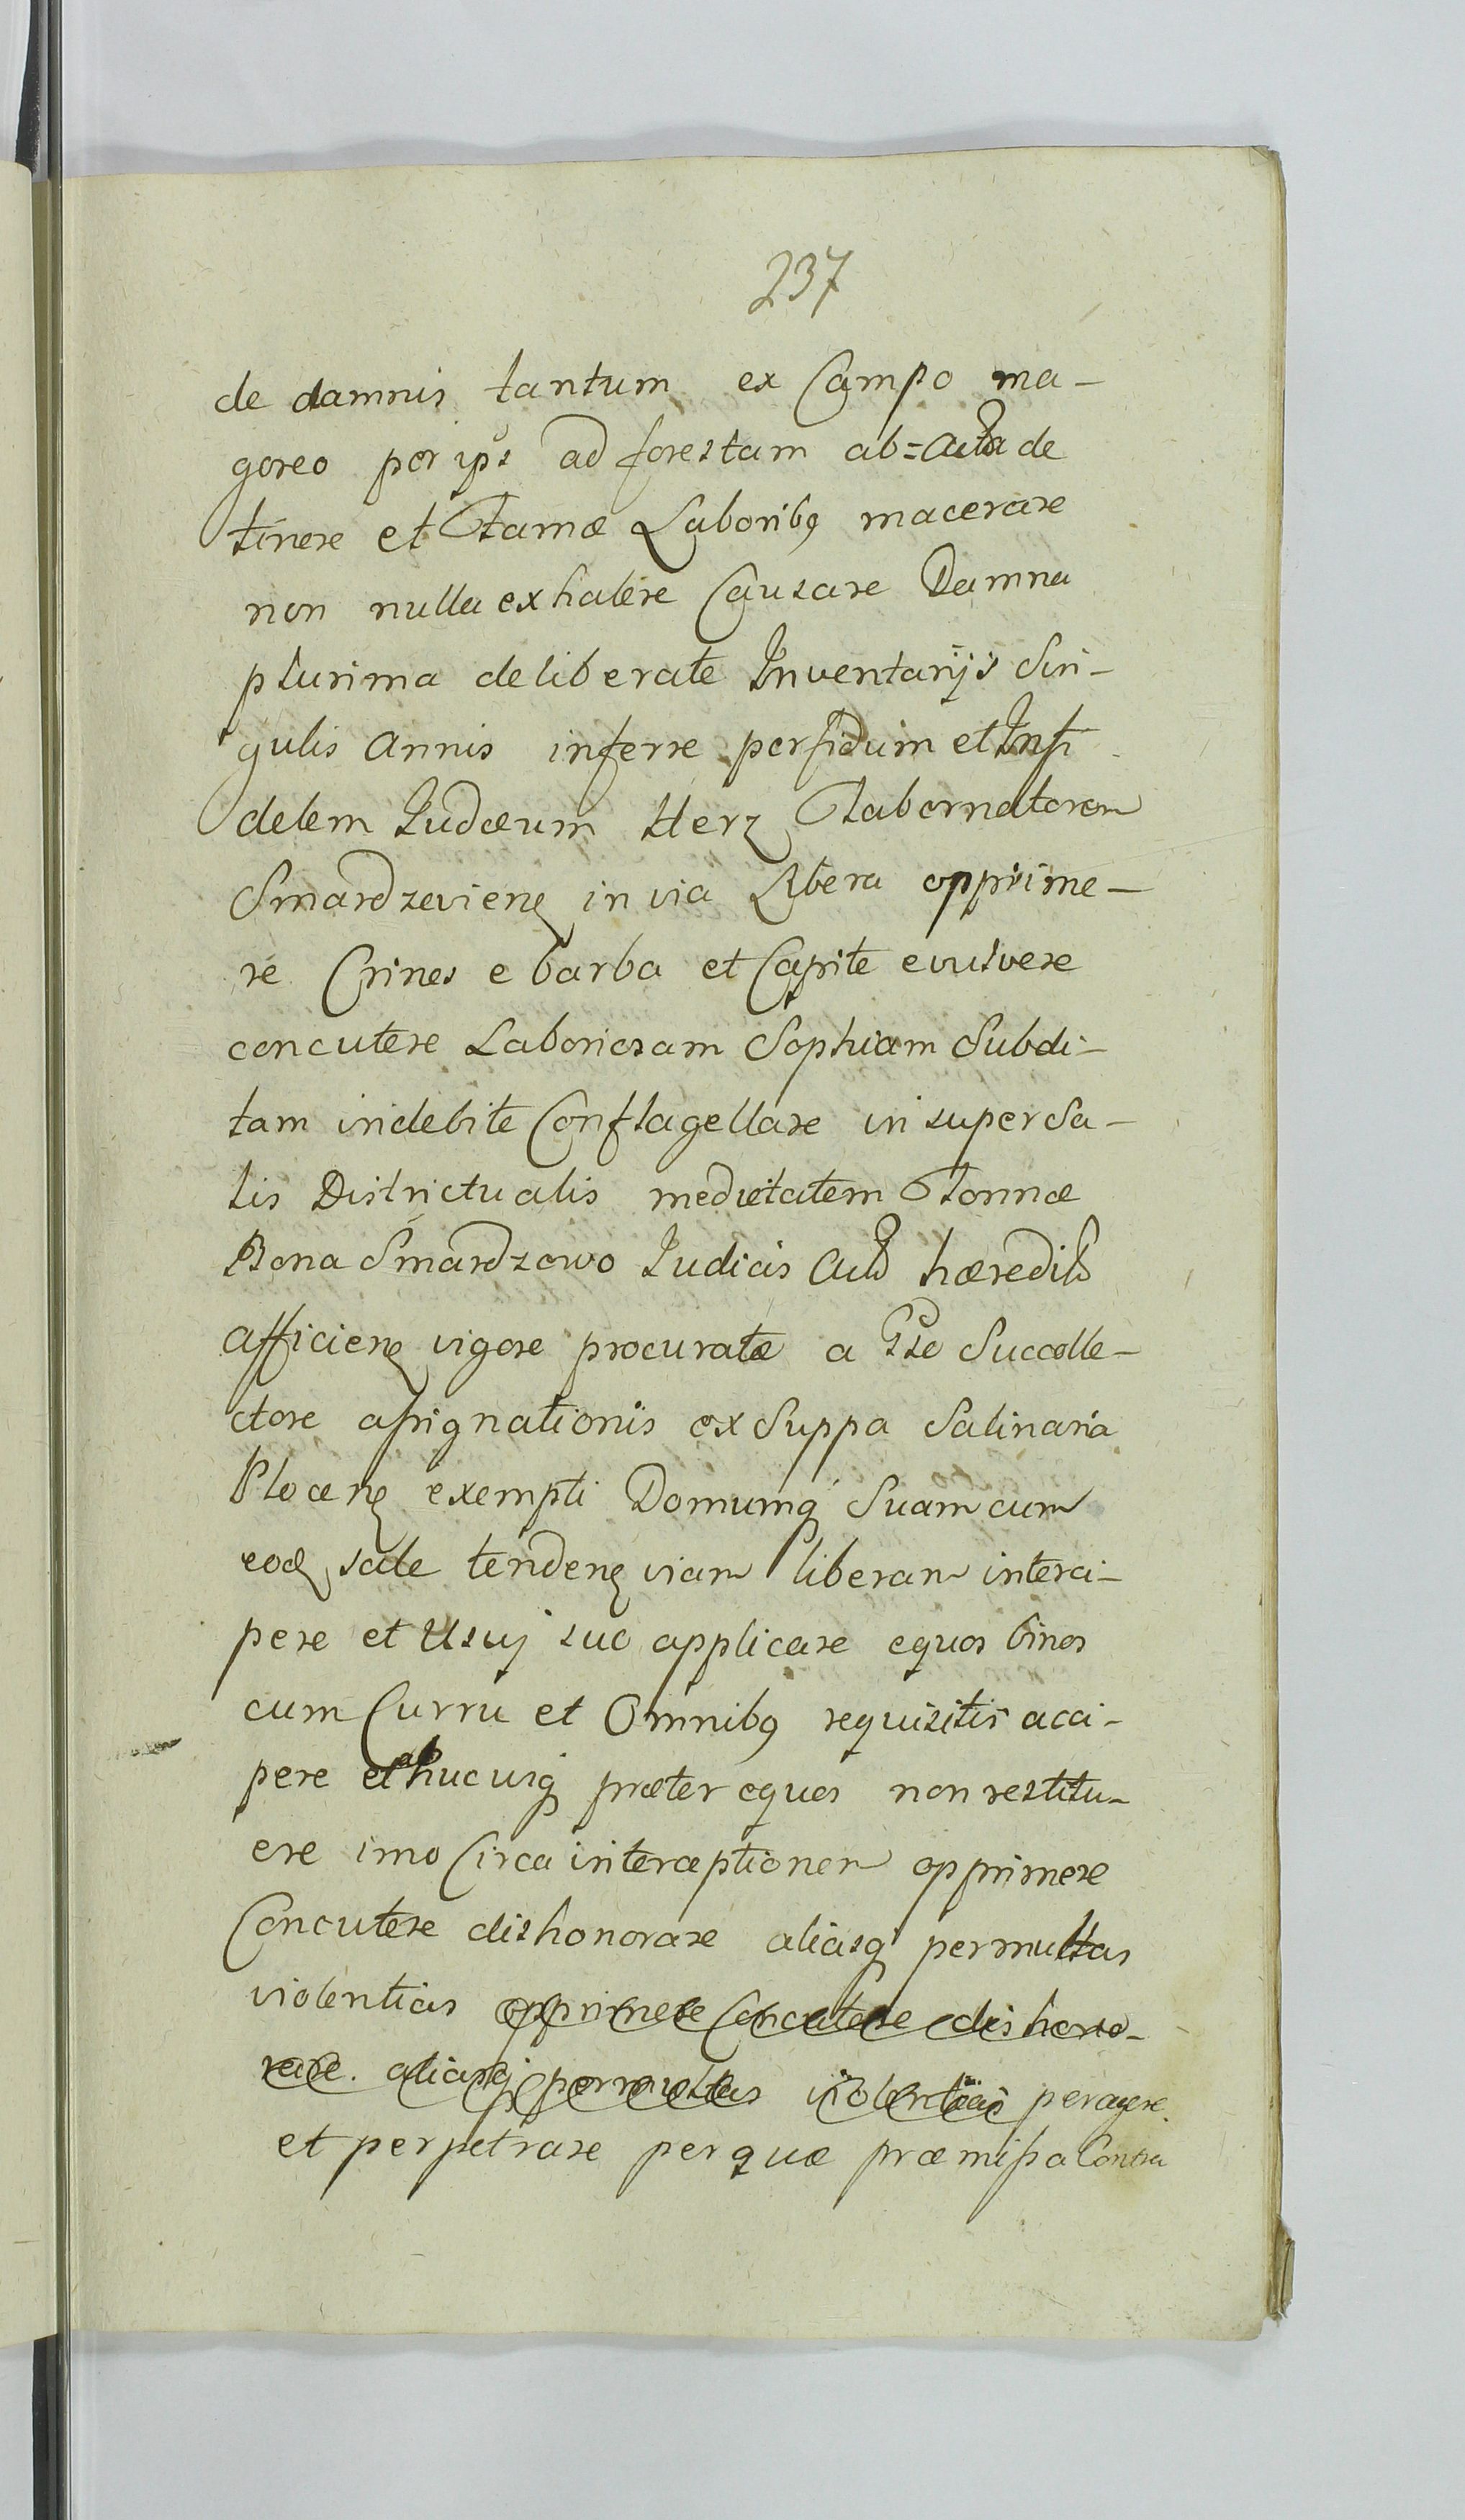 237
de damnis tantum ex Campo ma-
goreo per ips ad forestam ab=acta de
tinere et Famæ Laboribq macerare
non nulla exhalere Causare Damna
plurima deliberate Inventarijs Sin-
gulis annis inferre perfidum et Infi
delem Judæum Herz Tabernatorem
Smardzevienę in via Libera opprime-
re Crines e barba et Capite evulvere
concutere Laboriosam Sophiam Subdi-
tam indebite Conflagellare in super Sa-
lis Districtualis medietatem Tonnæ
Bona Smardzowo Judicis hæredit
afficienę vigore procuratæ a Succolle-
ctore assignationis ex Suppa Salinaria
Plocenę exempti Domumq Suam cum
eod sale tendenę viam liberam interci-
pere et Usuj suo applicare equos binos
cum Curru et Omnibq requisitis acci-
pere et ad hucusq præter equos non restitu-
ere imo Circa interceptionem opprimere
Concutere dishonorare aliasq permultas
violentias opprimere Concutere dishono-
rare. aliasq permultas violentias peragere
et perpetrare per quæ præmissa Contra